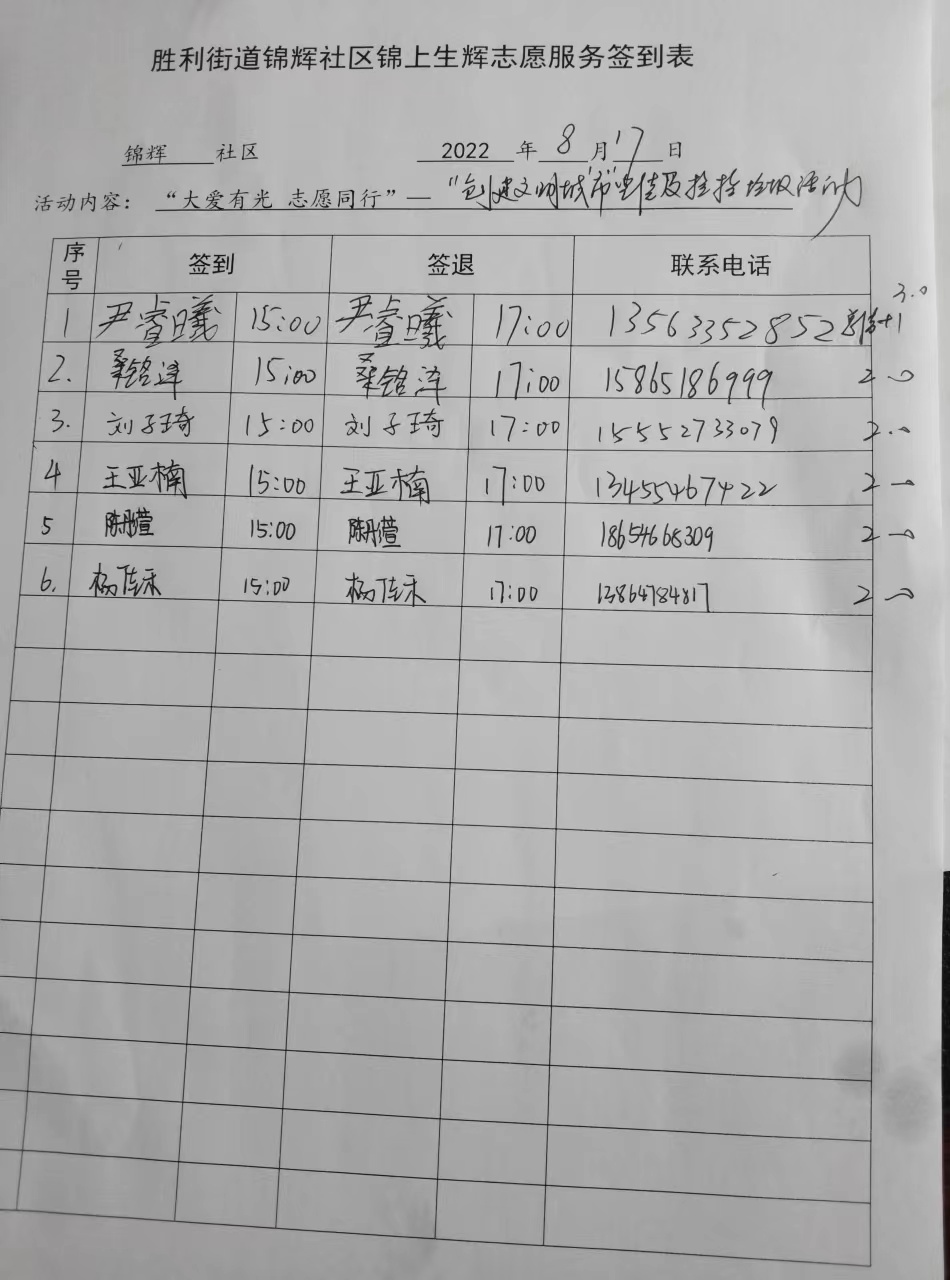 胜利街道锦辉社区锦上生辉志愿服务签到表
锦辉 社区 2022 年 8 月 17 日
活动内容： “大爱有光 志愿同行”— “创建文明城市”宣传及捡拾垃圾活动
序号 签到 签退 联系电话
3.0
1 尹睿曦 15:00 尹睿曦 17:00 13563352852 +1
2. 桑铭泽 15:00 桑铭泽 17:00 15865186999 2.0
3. 刘子琦 15:00 刘子琦 17:00 15552733079 2.0
4 王亚楠 15:00 王亚楠 17:00 13455467422 2.0
5 陈彤萱 15:00 陈彤萱 17:00 18654668309 2.0
6. 杨佳禾 15:00 杨佳禾 17:00 13864784817 2.0